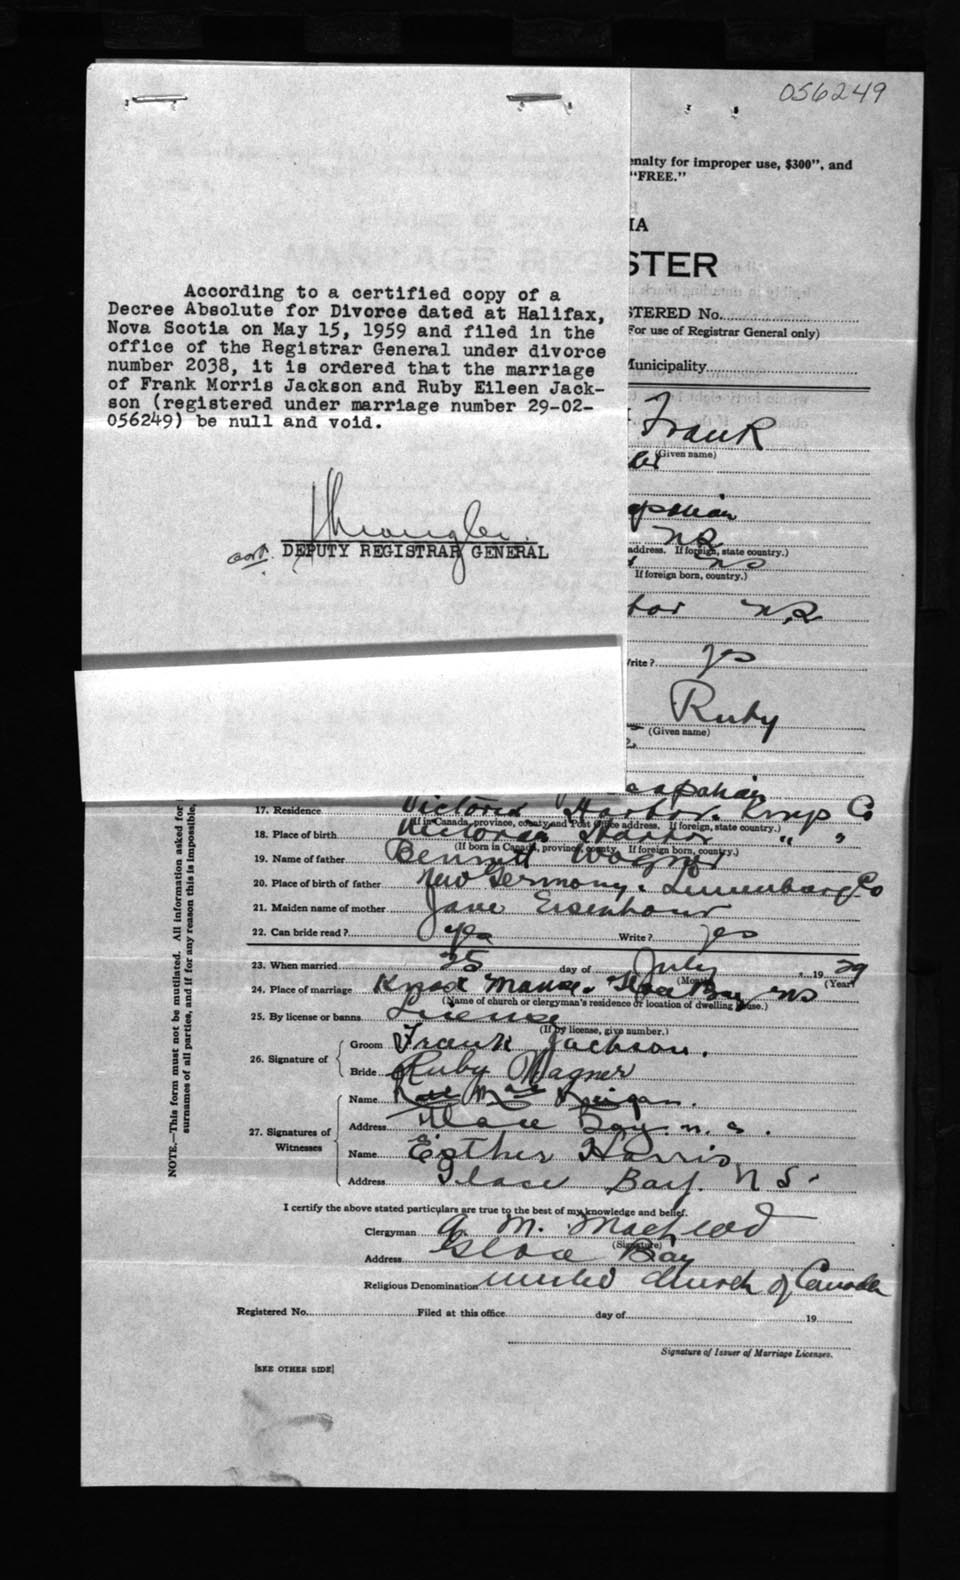 056249
enalty for improper use, $300", and
"FREE."
IA
STER
STERED No.
For use of Registrar General only)
Municipality
According to a certified copy of a
Decree Absolute for Divorce dated at Halifax,
Nova Scotia on May 15, 1959 and filed in the
office of the Registrar General under divorce
number 2038, it is ordered that the marriage
of Frank Morris Jackson and Ruby Eileen Jack-
son (registered under marriage number 29-02-
056249) be null and void.
DEPUTY REGISTRAR GENERAL
Frank
(Given name)
address. If foreign, state country.)
If foreign born, country.)
Write? yes
Ruby
(Given name)
17. Residence Victoria Harbor. Kings Co
(If in Canada, province, county and Post Office address. If foreign, state country.)
18. Place of birth Victoria Harbor " "
(If born in Canada, province, county. If foreign born, country.)
19. Name of father Bennett Wagner
20. Place of birth of father New Germany. Lunenburg Co
21. Maiden name of mother Jane Eisenhour
22. Can bride read? yes Write? yes
23. When married 25 day of July 1929
(Month) (Year)
24. Place of marriage Knox Manse. Glace Bay NS
(Name of church or clergyman's residence or location of dwelling house.)
25. By license or banns License
(If by license, give number.)
26. Signature of Groom Frank Jackson.
Bride Ruby Wagner
27. Signatures of Witnesses
Name
Address Glace Bay. n. s.
Name Esther Harris
Address Glace Bay. N S.
I certify the above stated particulars are true to the best of my knowledge and belief.
Clergyman A. M. MacLeod
(Signature)
Address Glace Bay
Religious Denomination United Church of Canada
Registered No. Filed at this office day of 19
Signature of Issuer of Marriage Licenses.
[SEE OTHER SIDE]
NOTE.—This form must not be mutilated. All information asked for
surnames of all parties, and if for any reason this is impossible,